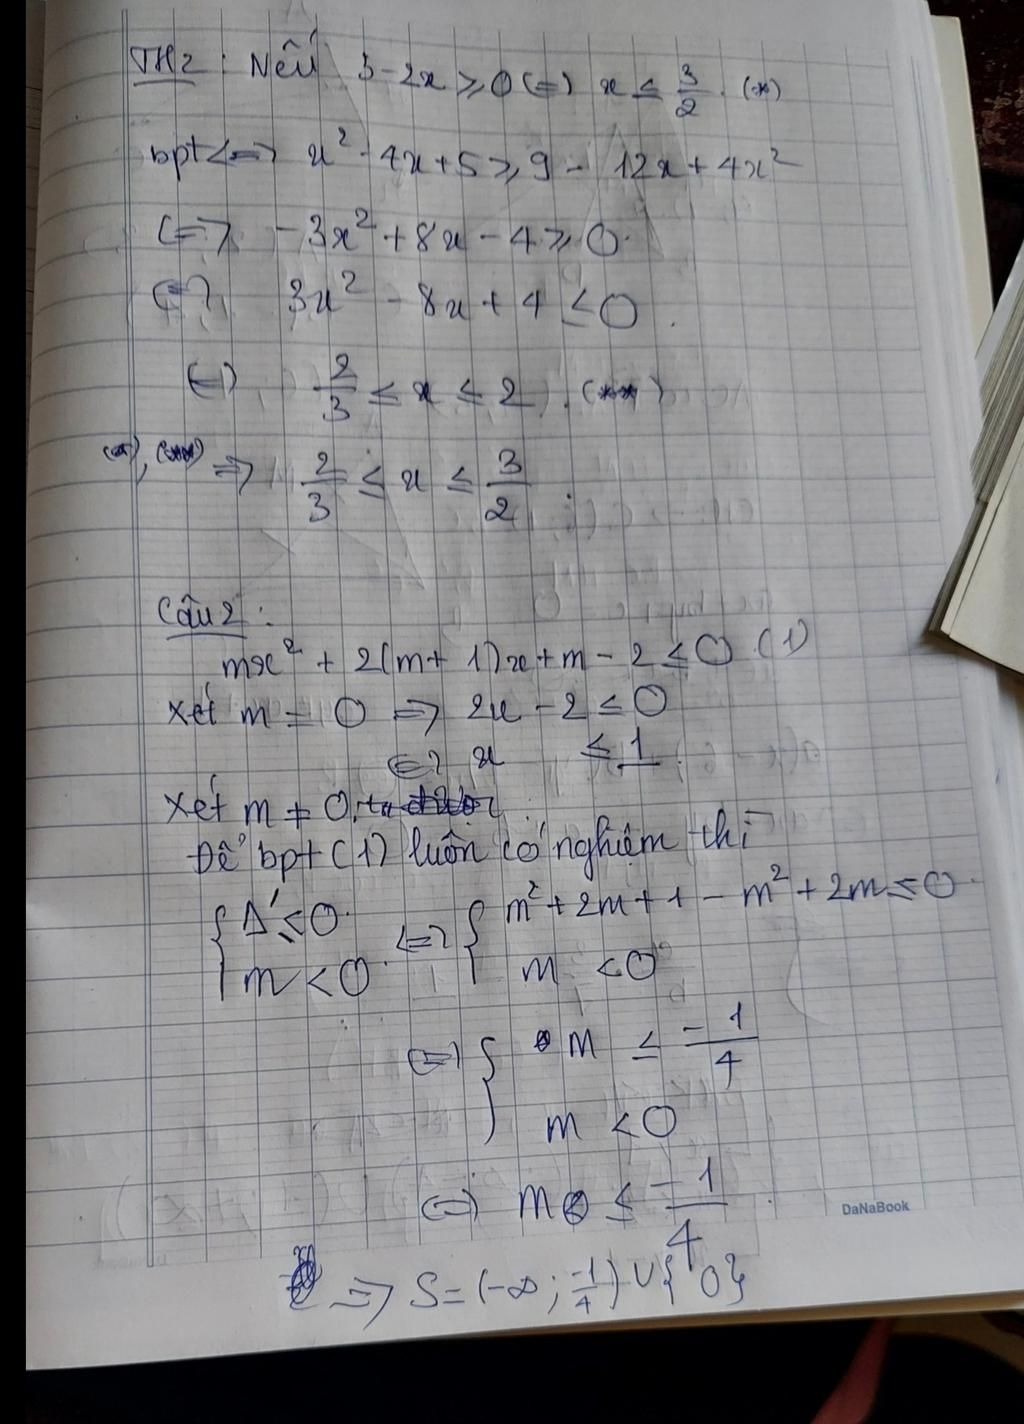 TH2: Nếu 3-2x ≥ 0 (=) x ≤ 3/2. (*)
bpt <=> x² - 4x + 5 ≥ 9 - 12x + 4x²
(=> - 3x² + 8x - 4 ≥ 0.
(=) 3x² - 8x + 4 ≤ 0.
(=) 2/3 ≤ x ≤ 2. (**)
(*), (**) => 2/3 ≤ x ≤ 3/2.
Câu 2:
mx² + 2(m+1)x + m - 2 ≤ 0 (1)
Xét m = 0 => 2x - 2 ≤ 0
(=) x ≤ 1
Xét m ≠ 0,
Để bpt (1) luôn có nghiệm thì
{ Δ' ≤ 0. <=> { m² + 2m + 1 - m² + 2m ≤ 0.
m < 0. m < 0
(=) { m ≤ -1/4
m < 0
(=) m ≤ -1/4
=> S = (-∞; -1/4) ∪ {0}
DaNaBook